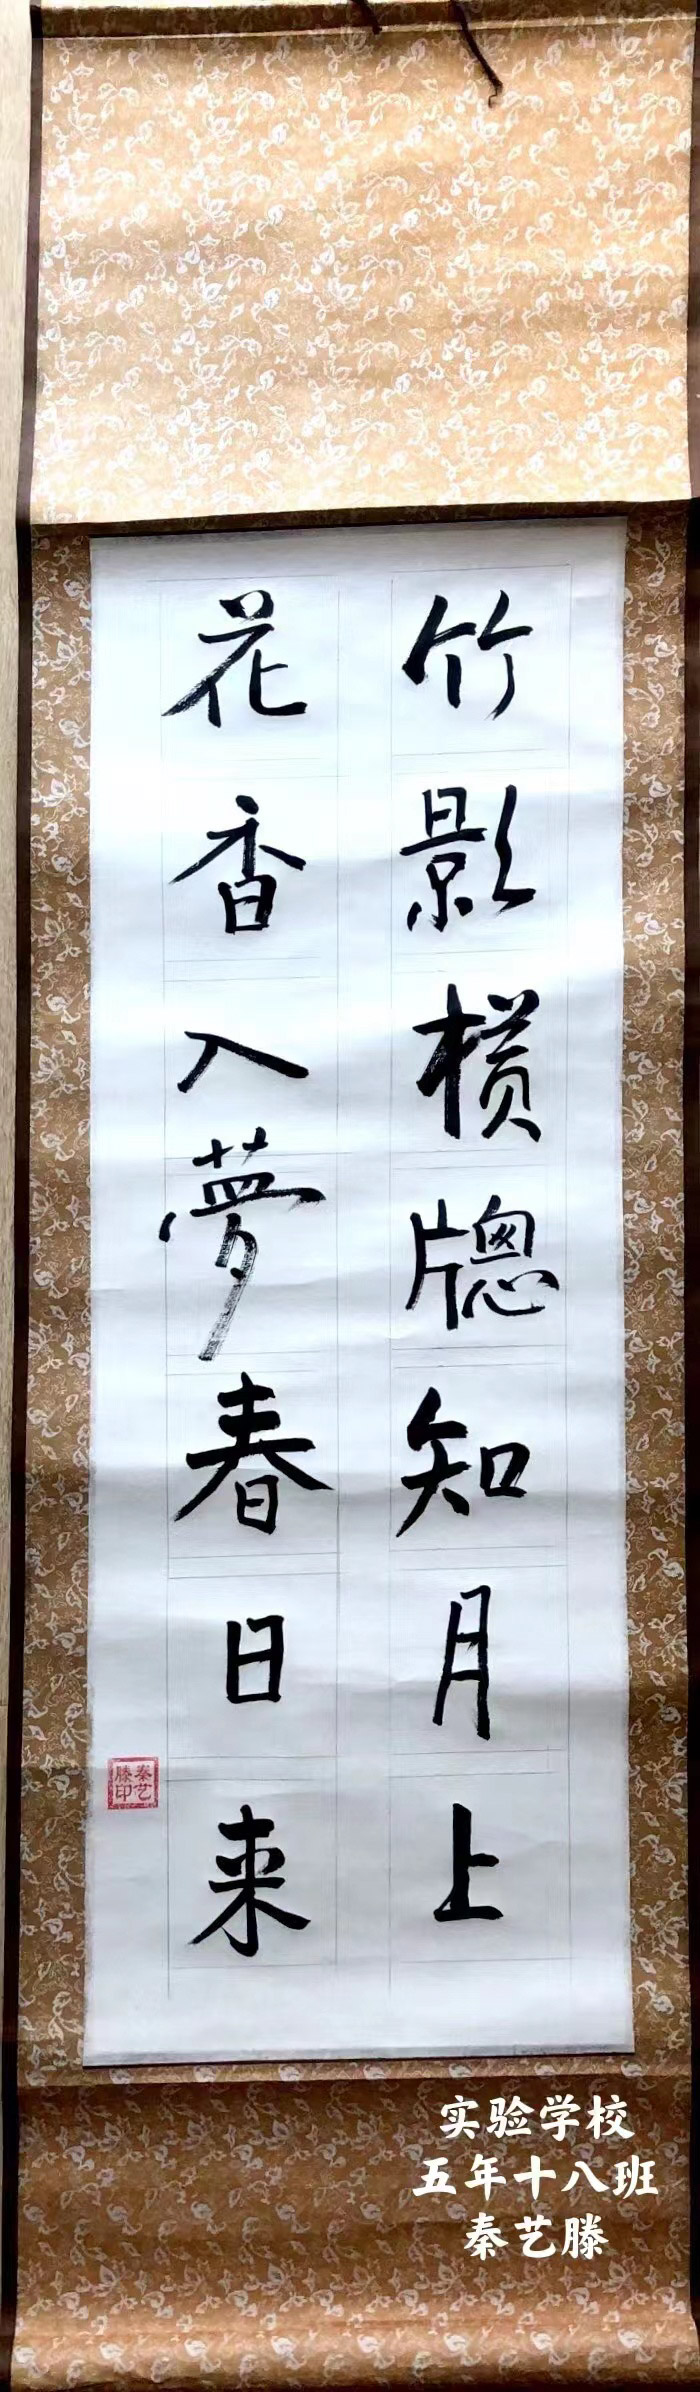 竹影横牕知月上
花香入夢春日来
秦艺
滕印
实验学校
五年十八班
秦艺滕